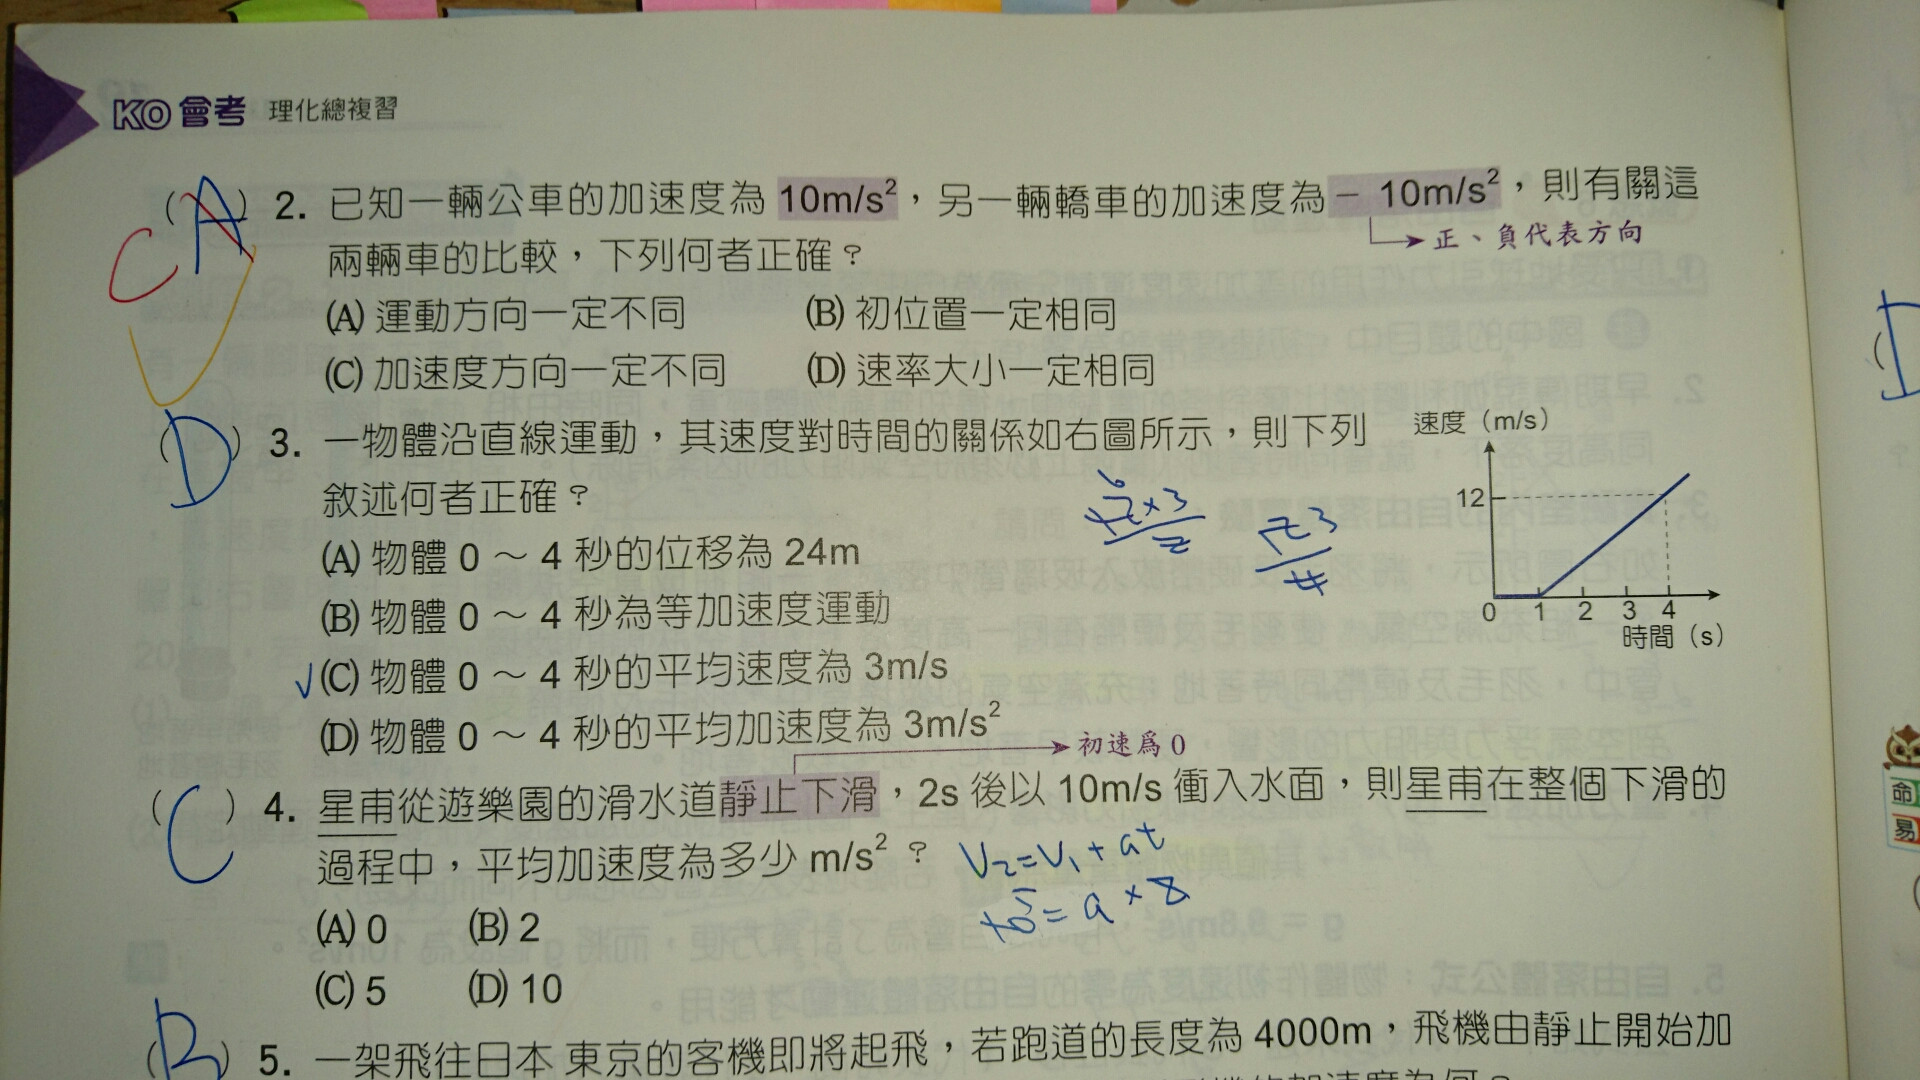 KO 會考 理化總複習
(A) 2. 已知一輛公車的加速度為 10m/s²，另一輛轎車的加速度為－10m/s²，則有關這
C
正、負代表方向
兩輛車的比較，下列何者正確？
(A) 運動方向一定不同 (B) 初位置一定相同
(C) 加速度方向一定不同 (D) 速率大小一定相同
(D) 3. 一物體沿直線運動，其速度對時間的關係如右圖所示，則下列
敘述何者正確？
速度（m/s）
12
0 1 2 3 4
時間（s）
(A) 物體 0 ～ 4 秒的位移為 24m
(B) 物體 0 ～ 4 秒為等加速度運動
✓(C) 物體 0 ～ 4 秒的平均速度為 3m/s
(D) 物體 0 ～ 4 秒的平均加速度為 3m/s²
初速為 0
(C) 4. 星甫從遊樂園的滑水道靜止下滑，2s 後以 10m/s 衝入水面，則星甫在整個下滑的
過程中，平均加速度為多少 m/s²？
V₂=V₁+at
(A) 0 (B) 2
(C) 5 (D) 10
(B) 5. 一架飛往日本東京的客機即將起飛，若跑道的長度為 4000m，飛機由靜止開始加
D
命
易